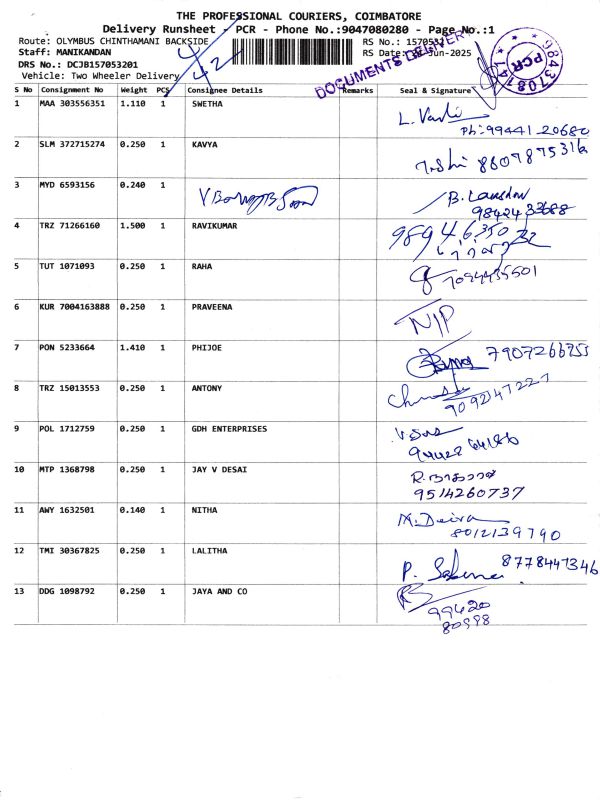 THE PROFESSIONAL COURIERS, COIMBATORE
Delivery Runsheet - PCR - Phone No.:9047080280 - Page No.:1
Route: OLYMBUS CHINTHAMANI BACKSIDE
RS No.:
Staff: MANIKANDAN
RS Date: -Jun-2025
DRS No.: DCJB157053201
Vehicle: Two Wheeler Delivery
DOCUMENTS DELIVERY
PCR
S No Consignment No Weight PCS Consignee Details Remarks Seal & Signature
1 MAA 303556351 1.110 1 SWETHA
Ph: 99441 20680
2 SLM 372715274 0.250 1 KAVYA
8607875316
3 MYD 6593156 0.240 1 B.
98424 33688
4 TRZ 71266160 1.500 1 RAVIKUMAR
5 TUT 1071093 0.250 1 RAHA
6 KUR 7004163888 0.250 1 PRAVEENA N/P
7 PON 5233664 1.410 1 PHIJOE
8 TRZ 15013553 0.250 1 ANTONY
9092147227
9 POL 1712759 0.250 1 GDH ENTERPRISES
10 MTP 1368798 0.250 1 JAY V DESAI
9514260737
11 AWY 1632501 0.140 1 NITHA
8012139790
12 TMI 30367825 0.250 1 LALITHA
8778447346
13 DDG 1098792 0.250 1 JAYA AND CO
99420
80998